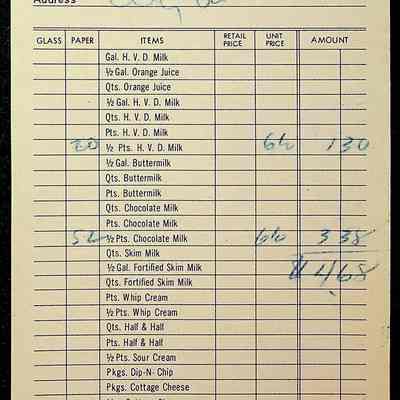 Address
GLASS PAPER ITEMS RETAIL PRICE UNIT PRICE AMOUNT
Gal. H. V. D. Milk
½ Gal. Orange Juice
Qts. Orange Juice
½ Gal. H. V. D. Milk
Qts. H. V. D. Milk
Pts. H. V. D. Milk
20 ½ Pts. H. V. D. Milk 6½ 1 30
½ Gal. Buttermilk
Qts. Buttermilk
Pts. Buttermilk
Qts. Chocolate Milk
Pts. Chocolate Milk
52 ½ Pts. Chocolate Milk 6½ 3 38
Qts. Skim Milk
½ Gal. Fortified Skim Milk $ 4 68
Qts. Fortified Skim Milk
Pts. Whip Cream
½ Pts. Whip Cream
Qts. Half & Half
Pts. Half & Half
½ Pts. Sour Cream
Pkgs. Dip-N-Chip
Pkgs. Cottage Cheese